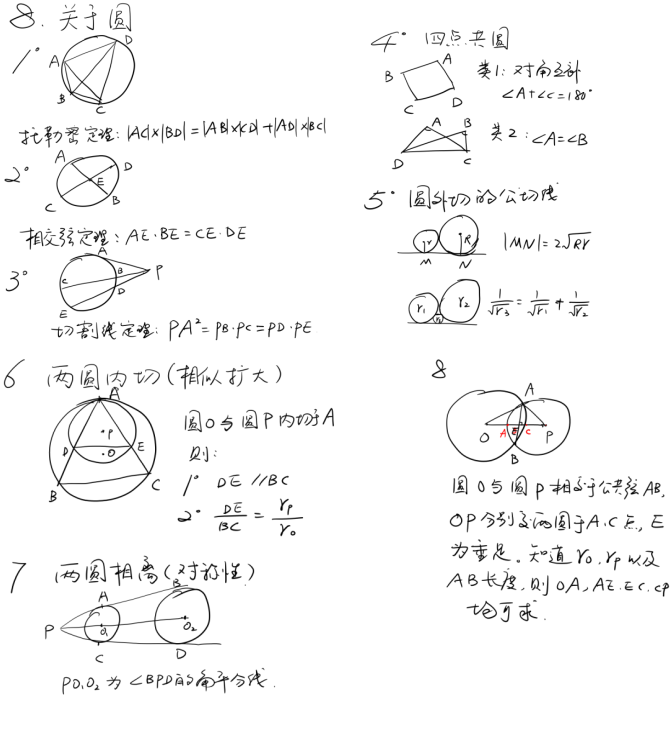 8. 关于圆
1°
A
D
B
C
托勒密定理: |AC|×|BD|=|AB|×|CD|+|AD|×|BC|
2°
A
D
E
C
B
相交弦定理: AE·BE=CE·DE
3°
A
B
P
C
D
E
切割线定理: PA²=PB·PC=PD·PE
4° 四点共圆
A
B
C
D
类1: 对角互补
∠A+∠C=180°
A
B
D
C
类2: ∠A=∠B
5° 圆外切的公切线
r
R
M
N
|MN|=2√Rr
r₁
r₂
r₃
1/√r₃ = 1/√r₁ + 1/√r₂
6 两圆内切(相似扩大)
A
P
D
O
E
B
C
圆O与圆P内切于A
则:
1° DE//BC
2° DE/BC = rₚ/r₀
7 两圆相离(对称性)
A
B
P
O₁
O₂
C
D
PO₁O₂为∠BPD的角平分线.
8
A
O
A
E
C
P
B
圆O与圆P相交于公共弦AB,
OP分别交两圆于A.C点, E
为垂足。知道r₀.rₚ以及
AB长度,则OA,AE.EC.CP
均可求.